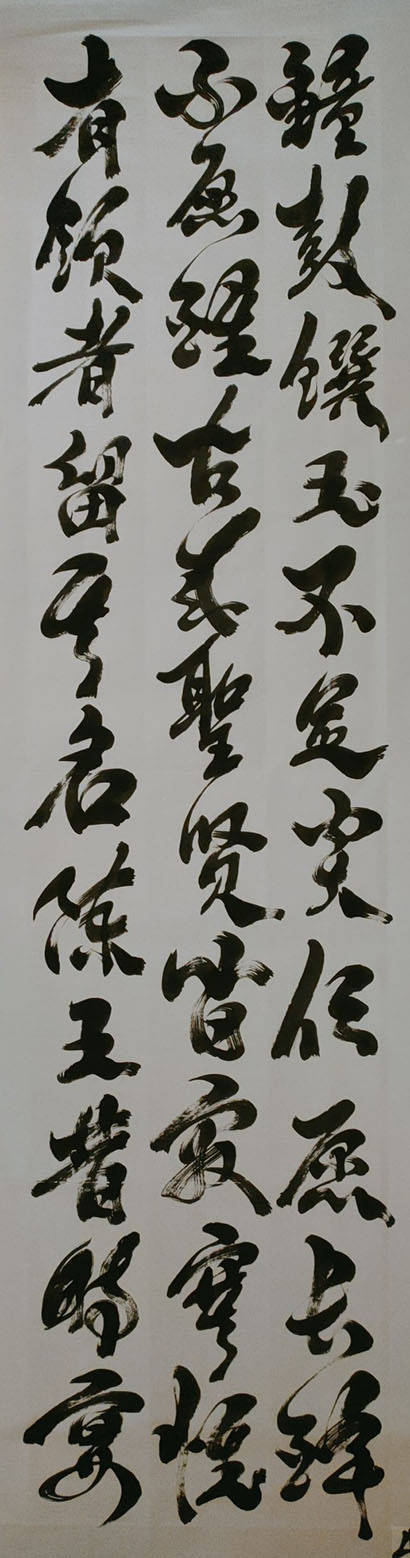 鐘鼓饌玉不足貴但愿長醉
不愿醒古來聖賢皆寂寞惟
有飲者留其名陳王昔時宴